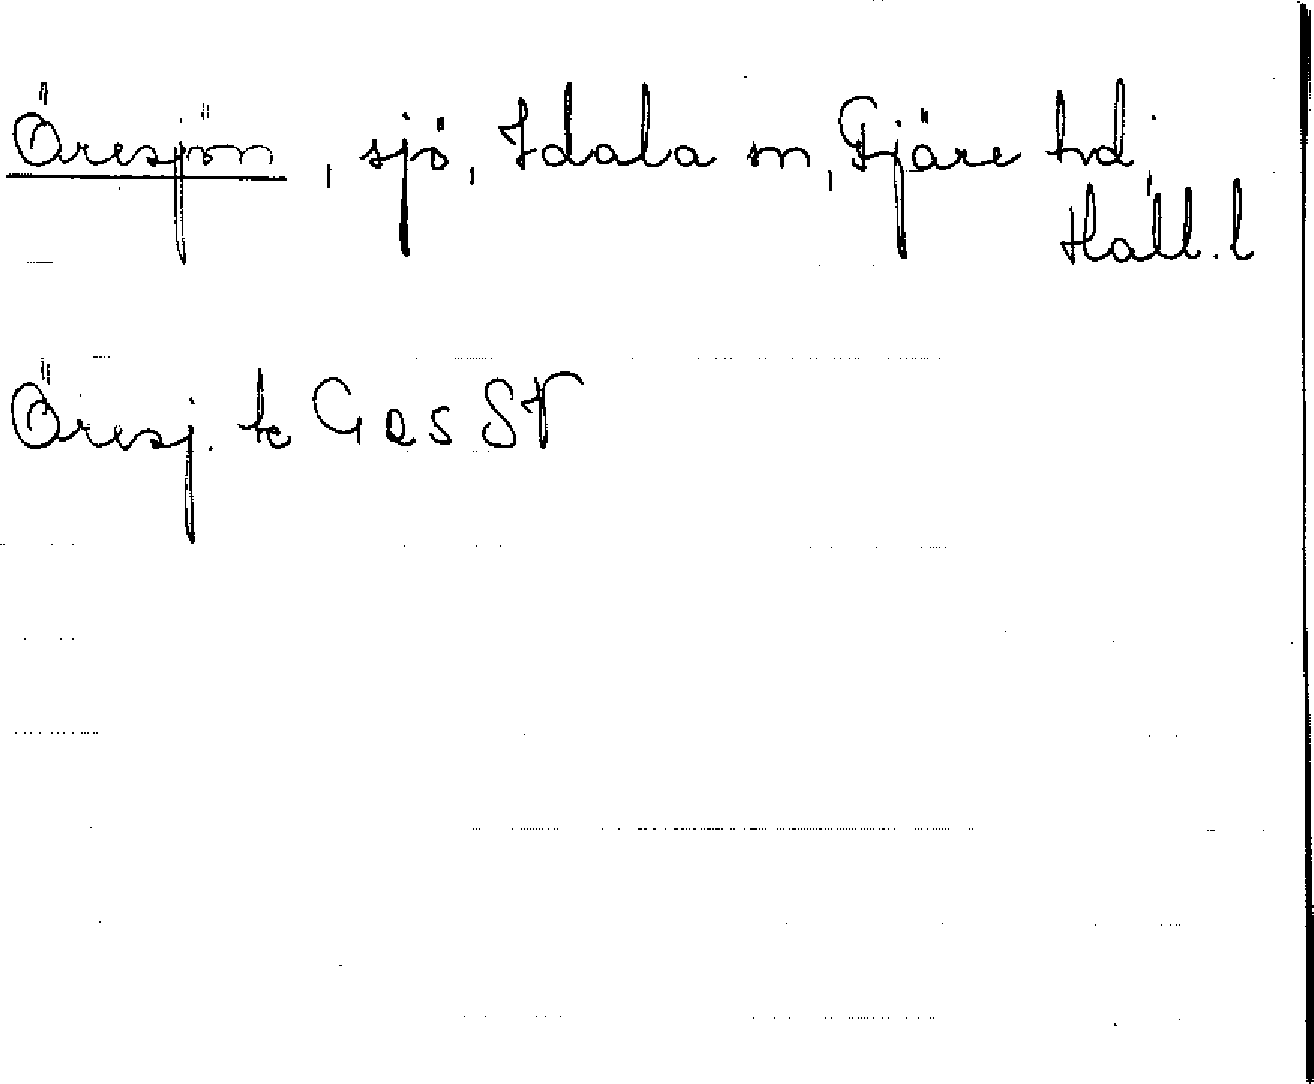 Öresjön, sjö, Idala sn, Fjäre hd,
Hall. l
Öresj. tc GRS SV